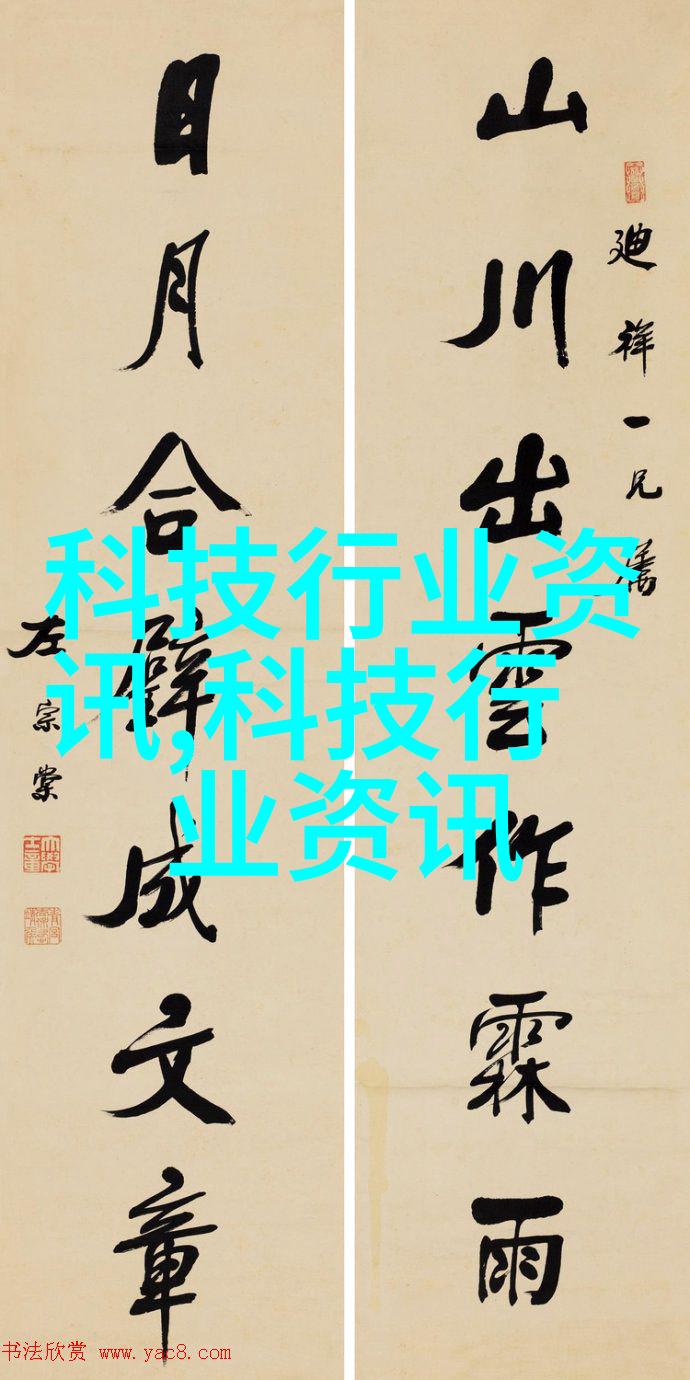 山川出雲作霖雨
廸祥一兄屬
日月合璧成文章
左宗棠
科技行业资
讯,科技行
业资讯
书法欣赏 www.yac8.com